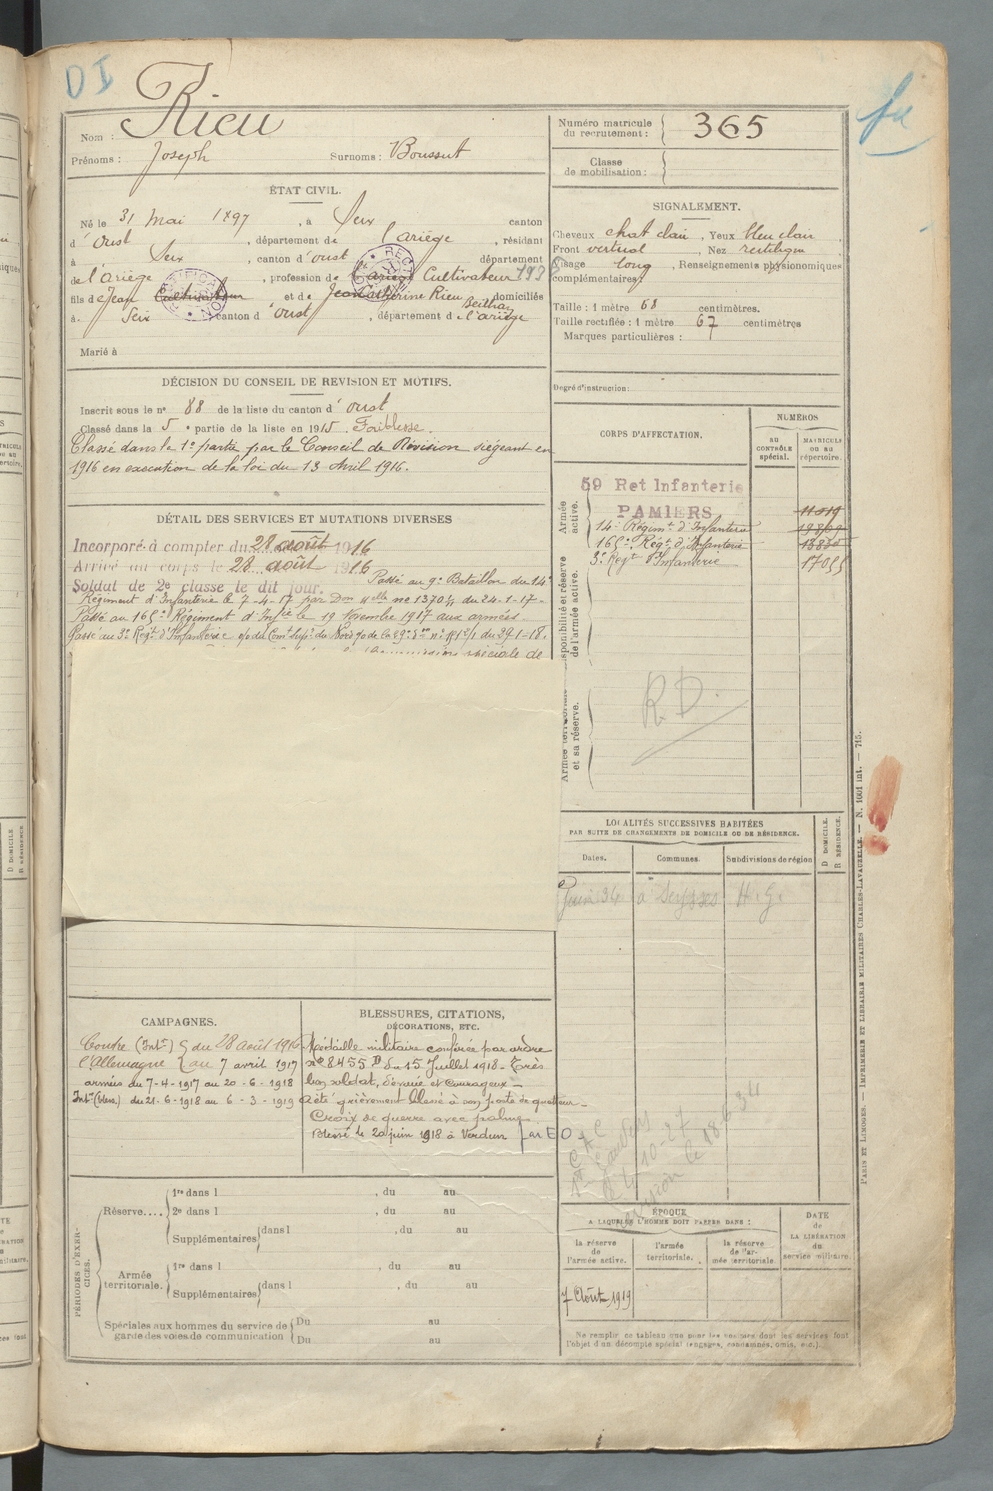 DI
Nom : Rieu
Prénoms : Joseph Surnoms : Boussut
Numéro matricule du recrutement : 365
Classe de mobilisation :
ÉTAT CIVIL.
Né le 31 Mai 1897, à Seix canton
d'Oust, département de l'ariège, résidant
à Seix, canton d'oust département
de l'Ariège, profession de Cultivateur
fils de Jean Cultivateur et de Jean Catherine Rieu domiciliés
à Seix canton d'oust, département de l'ariège
Marié à
SIGNALEMENT.
Cheveux chat clair, Yeux bleu clair
Front vertical, Nez rectiligne
Visage long, Renseignements physionomiques
complémentaires
Taille : 1 mètre 68 centimètres.
Taille rectifiée : 1 mètre 67 centimètres
Marques particulières :
Degré d'instruction :
DÉCISION DU CONSEIL DE REVISION ET MOTIFS.
Inscrit sous le n° 88 de la liste du canton d'oust
Classé dans la 5e partie de la liste en 1915. Faiblesse.
Classé dans la 1e partie par le Conseil de Révision siégeant en
1916 en execution de la loi du 13 Avril 1916.
DÉTAIL DES SERVICES ET MUTATIONS DIVERSES
Incorporé à compter du 28 août 1916
Arrivé au corps le 28 août 1916
Soldat de 2e classe le dit jour. Passé au 9e Bataillon du 14e
Régiment d'Infanterie le 7-4-17 par Don Melle no 1370 du 24-1-17-
Passé au 165e Régiment d'Infie le 19 Novembre 1917 aux armées.
Passé au 3e Regt d'Infanterie du 29-1-18.
Commission spéciale de
CORPS D'AFFECTATION.
NUMÉROS
AU CONTRÔLE spécial.
MATRICULE OU AU répertoire.
Armée active.
59 Ret Infanterie
PAMIERS
14e Régimt d'Infanterie
165e Régt d'Infanterie
3e Regt d'Infanterie
Disponibilité et réserve de l'armée active.
Armée territoriale et sa réserve.
R.D.
LOCALITÉS SUCCESSIVES HABITÉES
PAR SUITE DE CHANGEMENTS DE DOMICILE OU DE RÉSIDENCE.
Dates. Communes. Subdivisions de région
D DOMICILE.
R RÉSIDENCE.
Juin 34 à Seysses H. G.
CAMPAGNES.
Contre (Intr) du 28 août 1916
l'Allemagne au 7 avril 1917
armées du 7-4-1917 au 20-6-1918
Intr (bless) du 21-6-1918 au 6-3-1919
BLESSURES, CITATIONS,
DÉCORATIONS, ETC.
Médaille militaire conférée par ordre
no 8455 D du 15 Juillet 1918 - Très
bon soldat, dévoué et courageux -
A été grièvement blessé à son poste de guetteur -
Croix de guerre avec palme
Blessé le 20 juin 1918 à Verdun
1-10-27
Révision le 18-6-34
PÉRIODES D'EXERCICES.
Réserve.... 1re dans l , du au
2e dans l , du au
Supplémentaires dans l , du au
Armée territoriale. 1re dans l , du au
Supplémentaires dans l , du au
Spéciales aux hommes du service de garde des voies de communication Du au
Du au
ÉPOQUE
A LAQUELLE L'HOMME DOIT PASSER DANS :
la réserve de l'armée active.
l'armée territoriale.
la réserve de l'armée territoriale.
DATE de LA LIBÉRATION du service militaire.
7 Août 1919
Ne remplir ce tableau que pour les hommes dont les services font
l'objet d'un décompte spécial (engagés, condamnés, omis, etc.).
PARIS ET LIMOGES. — IMPRIMERIE ET LIBRAIRIE MILITAIRES CHARLES-LAVAUZELLE. — N. 1001 int. — 715.